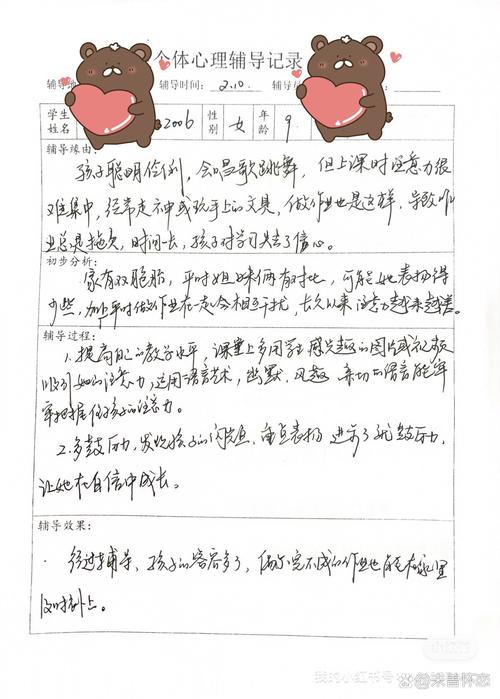 个体心理辅导记录
辅导 辅导时间: 2.10. 辅导
学生姓名 2006 性别 女 年龄 9
辅导缘由:
孩子聪明伶俐，会唱歌跳舞，但上课时注意力很
难集中，经常走神或玩手上的文具，做作业也是这样，导致作
业总是拖欠，时间一长，孩子对学习失去了信心。
初步分析:
家有双胞胎，平时姐妹俩有对比，可能她表扬得
少些，加上平时做作业在一起会相互干扰，长久以来注意力越来越差。
辅导过程:
1.提高自己的教学水平，课堂上多用学生感兴趣的图片或
吸引她的注意力，运用语言艺术，幽默、风趣、亲切的语言能牢
牢地抓住孩子的注意力。
2.多鼓励，发现孩子的闪光点，重点表扬 进步了就鼓励，
让她在自信中成长。
辅导效果:
经过辅导，孩子的笑容多了，偶尔完不成的作业也能在
及时补上。
小红书
我的小红书号